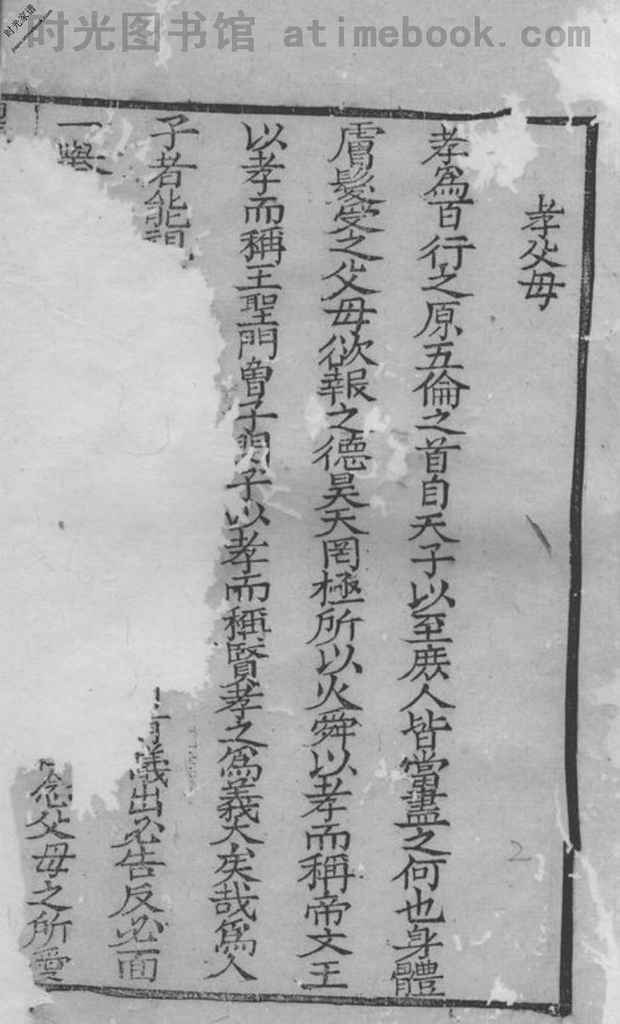 时光家谱
时光图书馆 atimebook.com
孝父母
孝爲百行之原五倫之首自天子以至庶人皆當盡之何也身體
膚髮受之父母欲報之德昊天罔極所以大舜以孝而稱帝文王
以孝而稱王聖門曾子閔子以孝而稱賢孝之爲義大矣哉爲人
子者能
儀出必告反必面
一舉
念父母之所愛
2